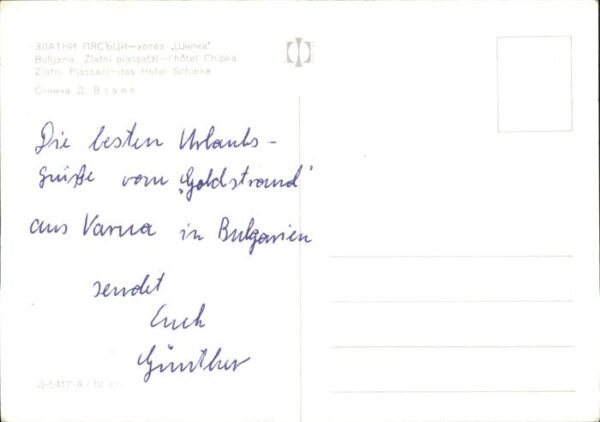 ЗЛАТНИ ПЯСЪЦИ—хотел „Шипка"
Bulgaria. Zlatni plassatzi—l'hôtel Chipka
Zlatni Pjassazi—das Hotel Schipka
Снимка Д. Влаев
Die besten Urlaubs-
grüße vom „Goldstrand"
aus Varna in Bulgarien
sendet
Euch
Günther
Д-5417-А / 10 ст.